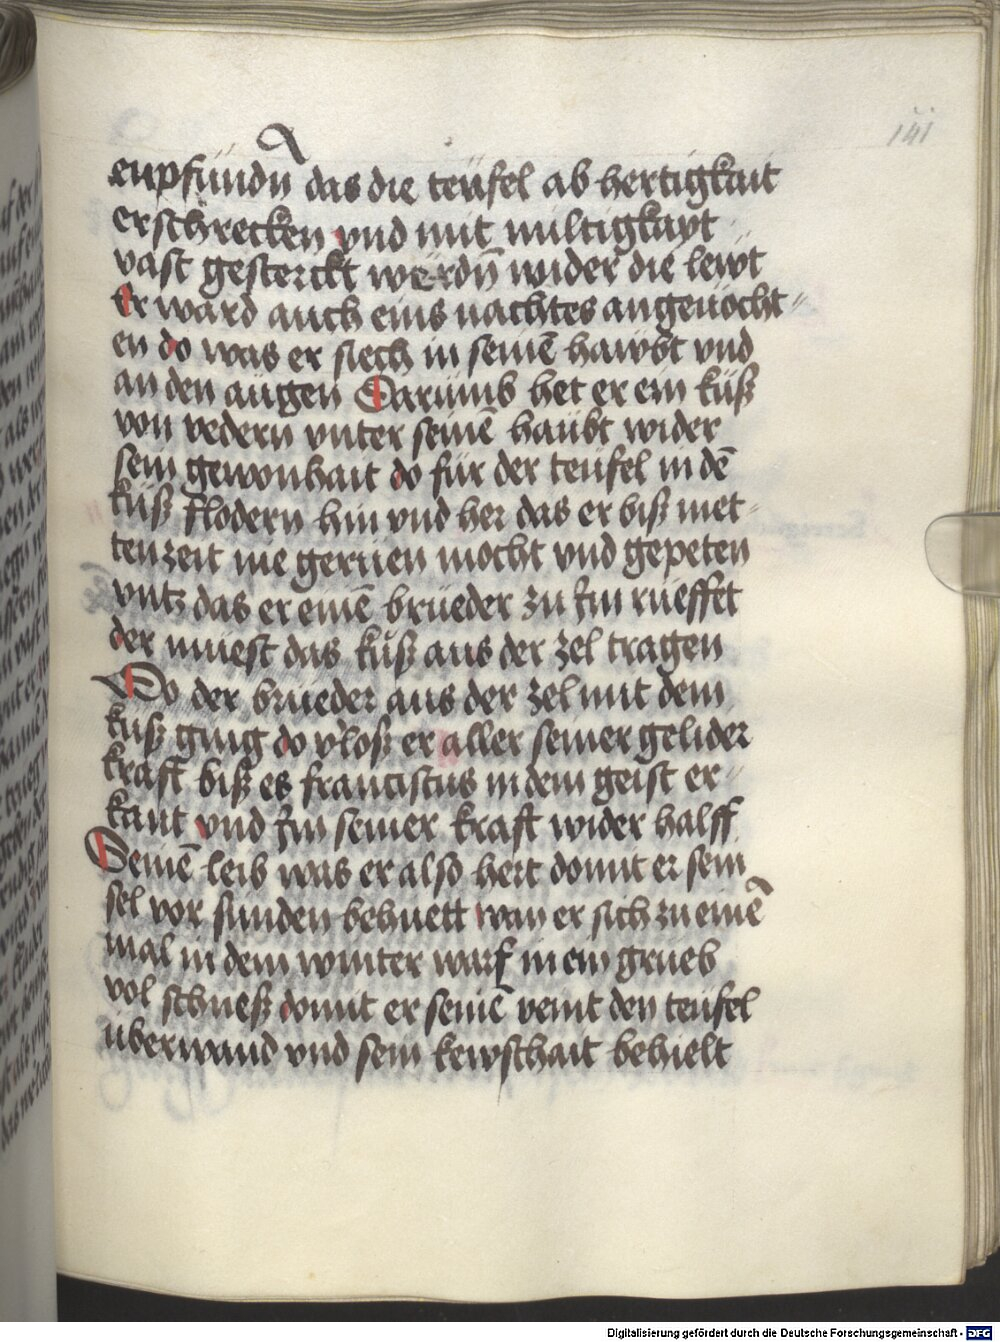 141
enpfundn̄ das die teufel ab hertigkait
erschrecken vnd mit miltigkayt
vast gesterckt werdn̄ wider die lewt
Er ward auch eins nachtes angeuocht=
en do was er siech in seinē hawbt vnd
an den augen Darumb het er ein kuß
von vedern vnter seinē haubt wider
sein gewonhait do fur der teufel in dē
kuß flodern hin vnd her das er biß met=
tenzeit nie geruen mocht vnd gepeten
vntz das er einē brueder zu Im rueffet
der muest das kuß aus der zel tragen
Do der brueder aus der zel mit dem
kuß ging do v'loß er aller seiner gelider
kraft biß es franciscus in dem geist er=
kant vnd Im seiner kraft wider halff
Seinē leib was er also hert domit er sein
sel vor sunden behuett wan er sich zu einē
mal in dem winter warf in ein grueb
vol schneß domit er seinē veint den teufel
uberwand vnd sein kewschait behielt
Digitalisierung gefördert durch die Deutsche Forschungsgemeinschaft - DFG